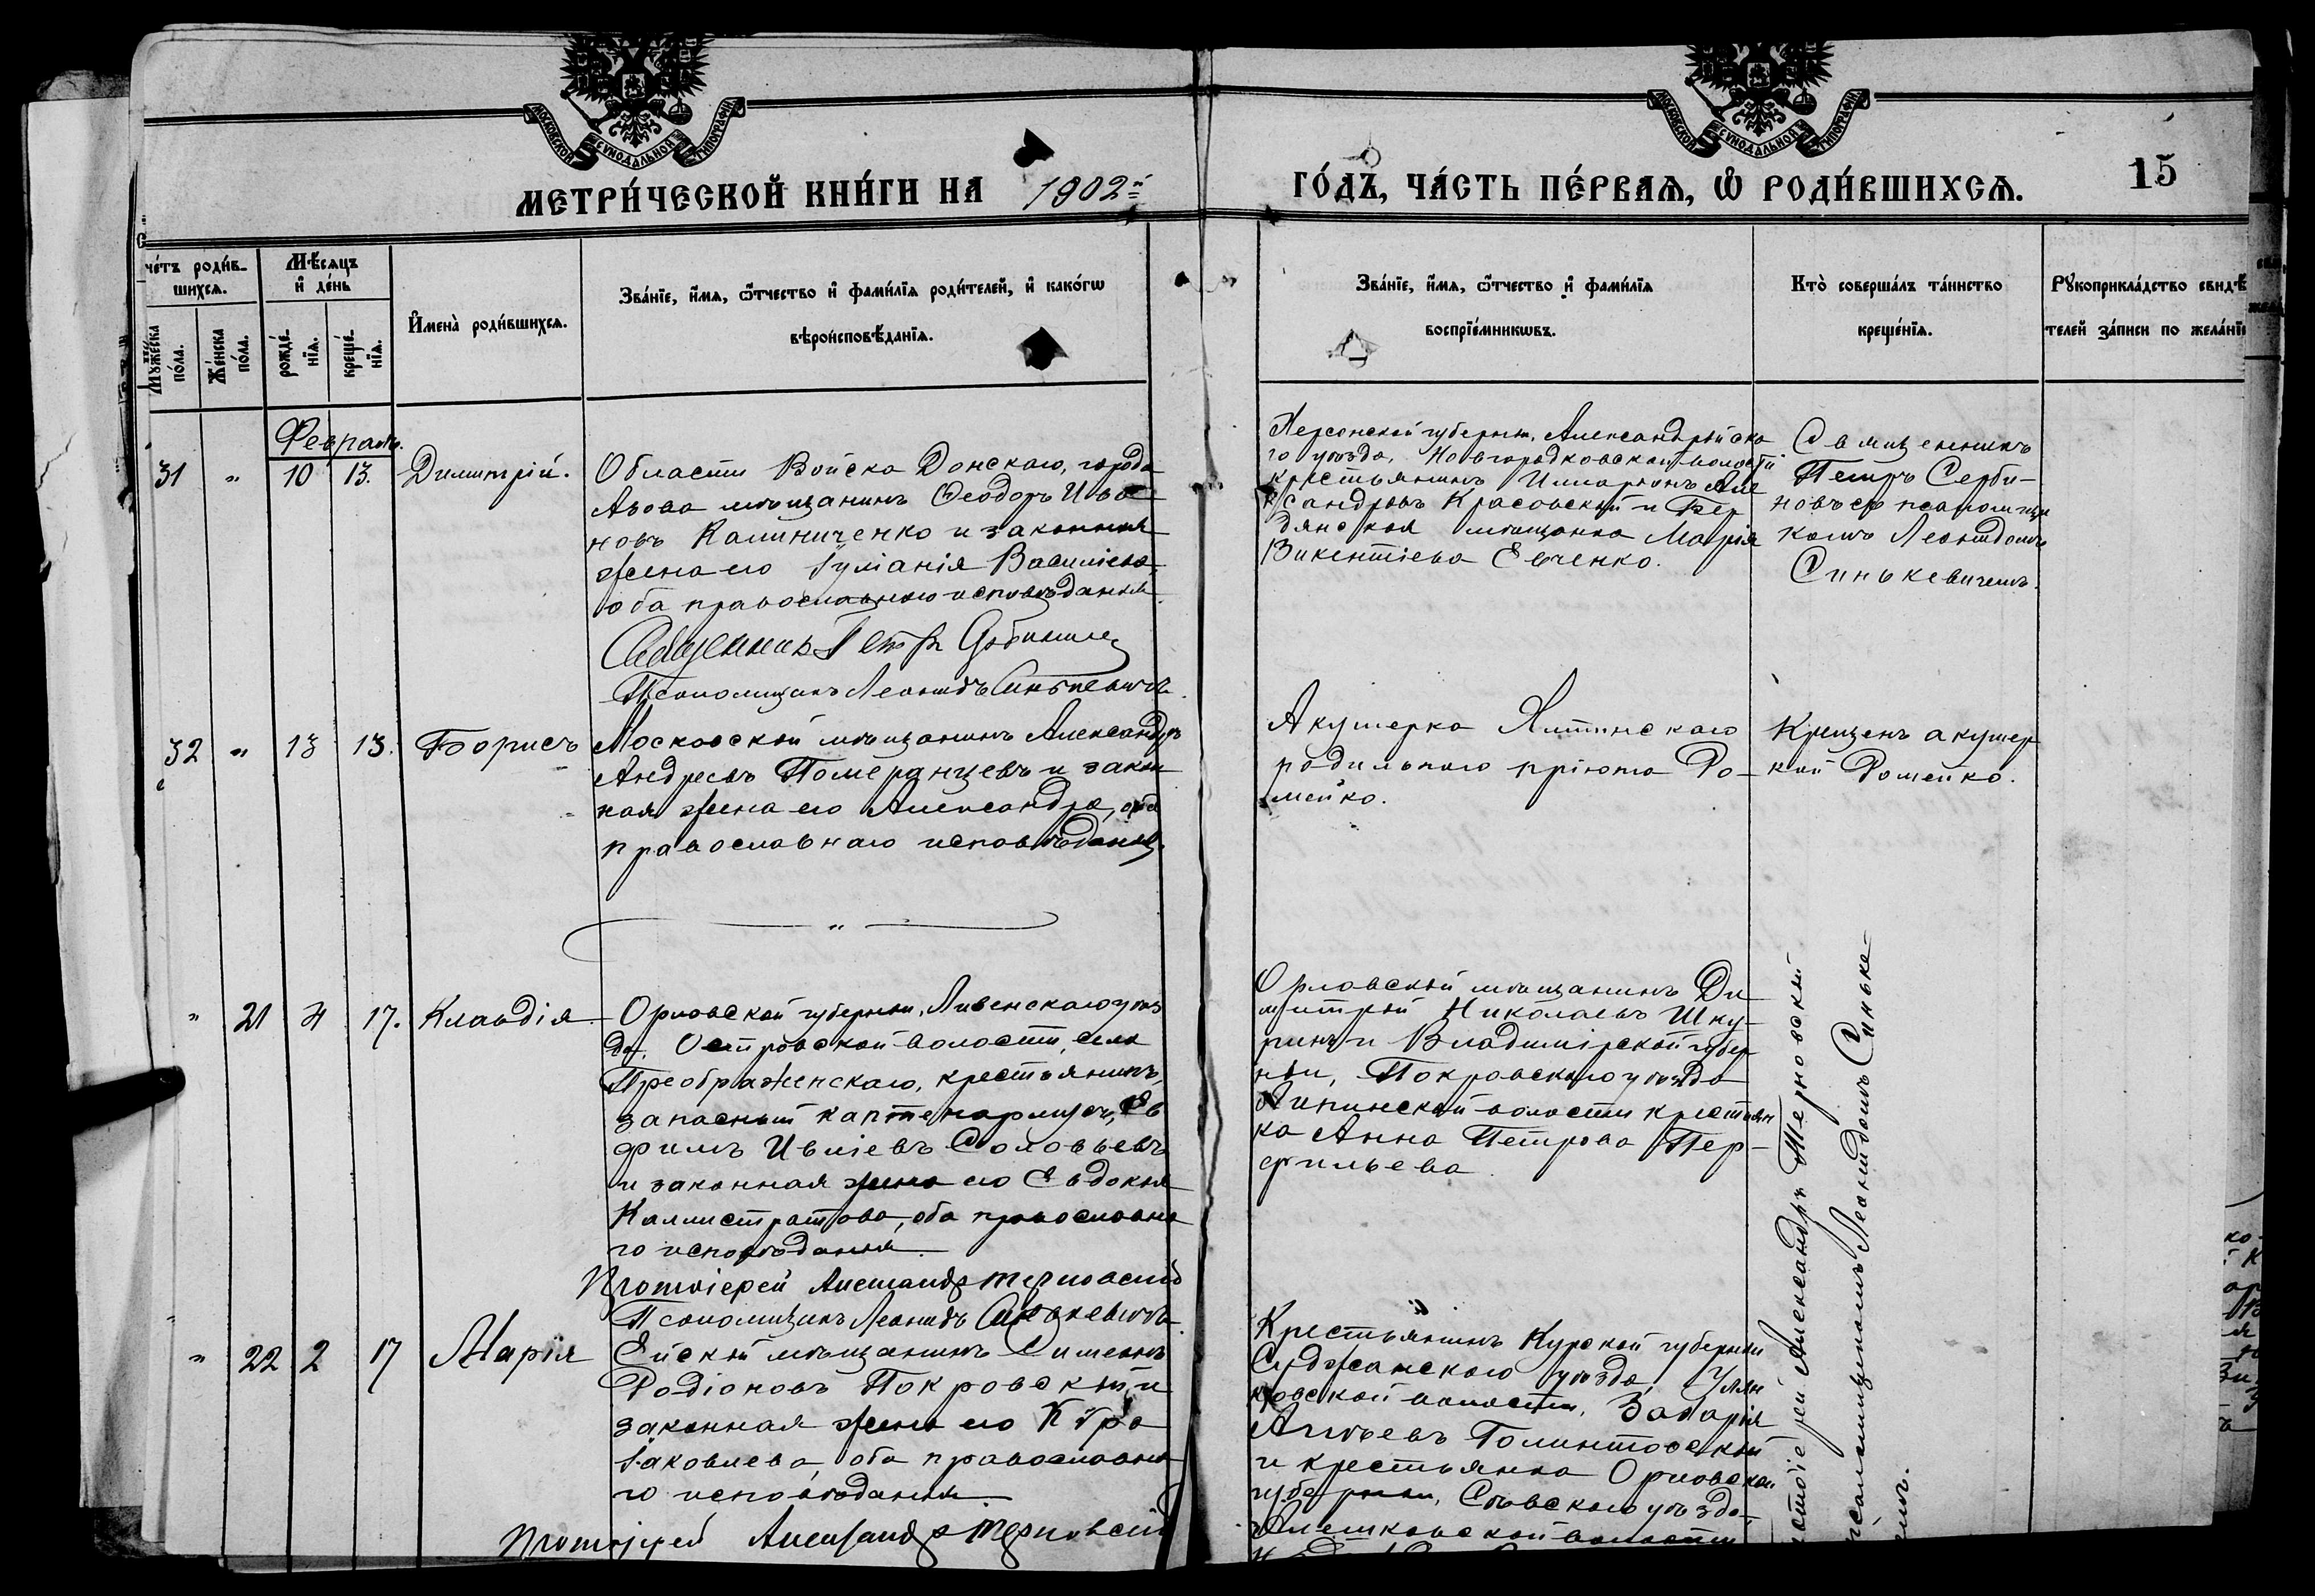 МОСКОВСКОЙ СѴНОДАЛЬНОЙ ТИПОГРАФІИ
МЕТРИ́ЧЕСКОЙ КНИ́ГИ НА 1902й
МОСКОВСКОЙ СѴНОДАЛЬНОЙ ТИПОГРАФІИ
ГО́ДЪ, ЧА́СТЬ ПЕ́РВАѦ, Ѽ РОДИ́ВШИХСѦ.
15
че́тъ роди́в-
шихсѧ.
Мѣ́сѧцъ
и҆ де́нь
Мꙋ́жеска
по́ла.
Же́нска
по́ла.
рожде́-
нїѧ.
креще́-
нїѧ.
И҆мена̀ роди́вшихсѧ.
Зва́нїе, и҆́мѧ, ѻ҆́тчество и҆ фами́лїѧ роди́телей, и҆ како́гѡ
вѣроисповѣ́данїѧ.
Зва́нїе, и҆́мѧ, ѻ҆́тчество и҆ фами́лїѧ
воспрїе́мникѡвъ.
Кто̀ соверша́лъ та́инство
креще́нїѧ.
Рꙋкоприкла́дство свидѣ́
телей за́писи по жела́нїю
Февраль.
31 " 10 13. Димитрій.
Области Войска Донскаго, города
Азова мѣщанинъ Ѳеодоръ Ива
новъ Калиниченко и законная
жена его Іуліанія Василіева,
оба православнаго исповѣданія.
Священникъ Петръ Сербиновъ
Псаломщикъ Леонидъ Синькевичъ
Херсонской губерніи, Александрійска
го уѣзда, Новгородковской волости
крестьянинъ Иларіонъ Але
ксандровъ Красовскій и Бер
дянская мѣщанка Марія
Викентіева Евченко.
Священникъ
Петръ Серби-
новъ съ псаломщи
комъ Леонидомъ
Синькевичемъ.
32 " 13 13. Борисъ
Московскій мѣщанинъ Александръ
Андреевъ Померанцевъ и закон
ная жена его Александра, оба
православнаго исповѣданія.
Акушерка Ялтинскаго
родильнаго пріюта Ро-
мейко.
Крещенъ акушер
кой Ромейко.
" 21 4 17. Клавдія
Орловской губерніи, Ливенскаго уѣз
да, Островской волости, села
Преображенскаго, крестьянинъ,
запасный каптенармусъ, Ев
фимъ Ивліевъ Соловьевъ
и законная жена его Евдокія
Каллистратова, оба православна
го исповѣданія.
Протоіерей Александръ Терновскій
Псаломщикъ Леонидъ Синькевичъ
Орловскій мѣщанинъ Ди
митрій Николаевъ Шку-
ринъ и Владимірской губер
ніи, Покровскаго уѣзда
Липинской волости крестьян
ка Анна Петрова Пер-
фильева
Протоіерей Александръ Терновскій
псаломщикомъ Леонидомъ Синьке-
чемъ.
" 22 2 17 Марія
Ейскій мѣщанинъ Симеонъ
Родіоновъ Покровскій и
законная жена его Кѵра
Іаковлева, оба православна
го исповѣданія.
Протоіерей Александръ Терновскій
Крестьянинъ Курской губерніи
Суджанскаго уѣзда, Улан
ковской волости, Захарія
Агѣевъ Голинтовскій
и крестьянка Орловской
губерніи, Сѣвскаго уѣзда,
волости